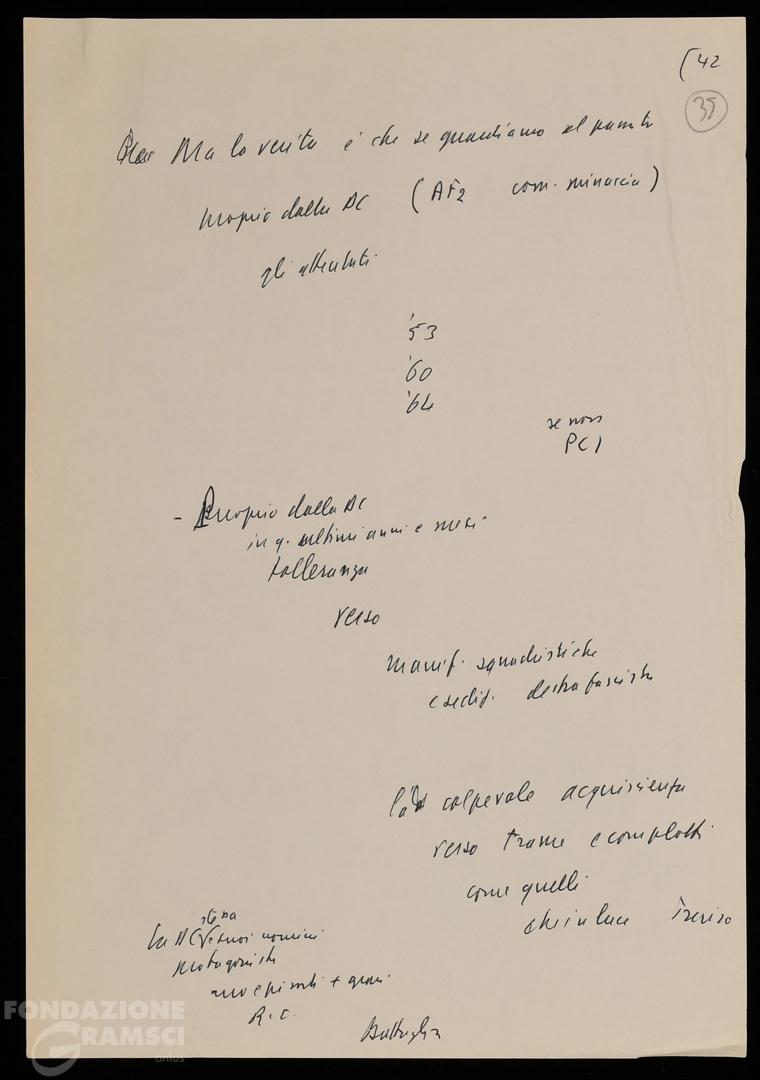 (42
35
Ma la verità è che se guardiamo al passato
proprio dalla DC (AF2 com. minaccia)
gli attentati
'53
'60
'64
se non
PCI
- Proprio dalla DC
in q. ultimi anni e mesi
tolleranza
verso
manif. squadristiche
e sediz. destra fascista
la colpevole acquiescenza
verso trame e complotti
come quelli
che in luce Treviso
stessa
La DC e suoi uomini
protagonisti
episodi + gravi
R.C.
Battaglia
FONDAZIONE
GRAMSCI
onlus